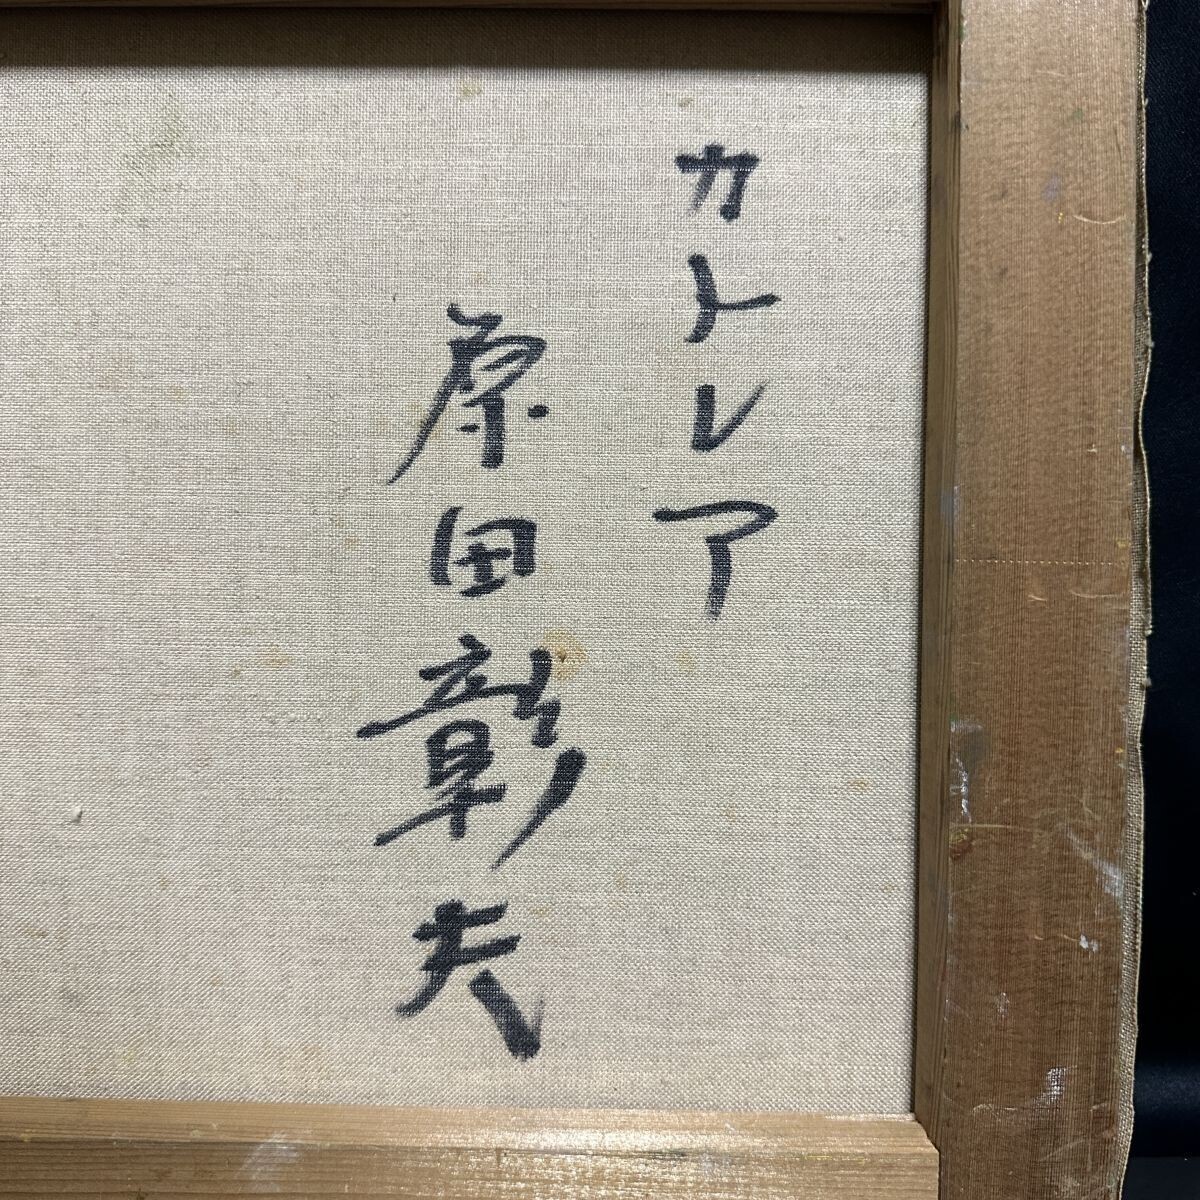 カトレア
原田彰夫